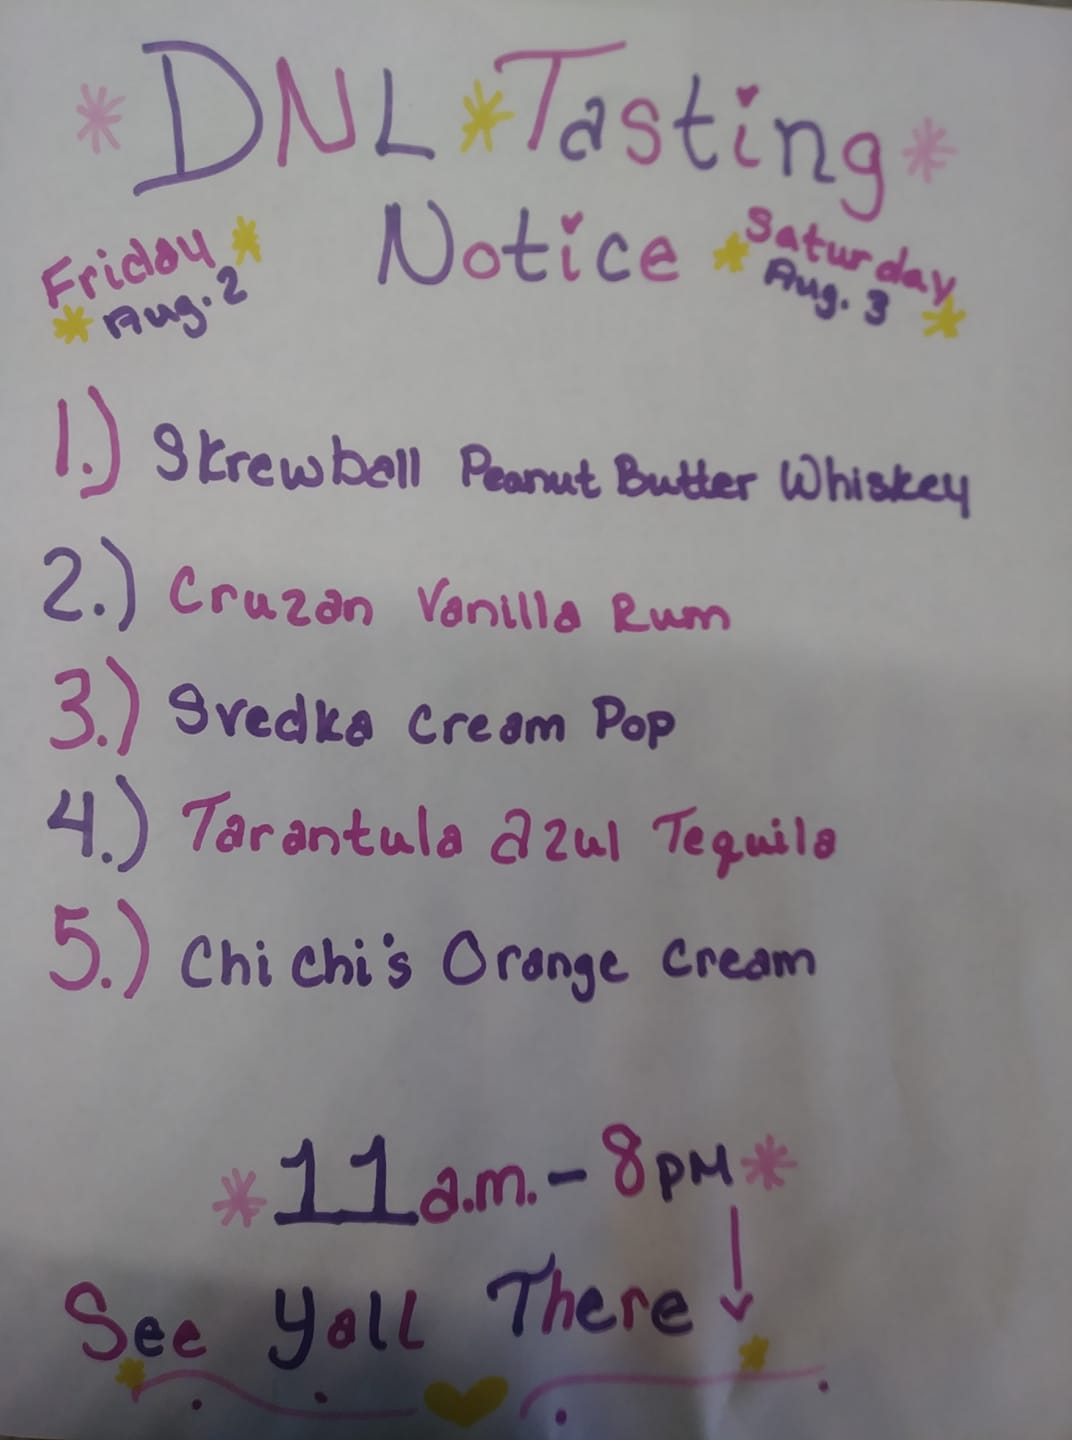 DNL Tasting
Notice
Friday
Aug. 2
Saturday
Aug. 3
1.) Skrewball Peanut Butter Whiskey
2.) Cruzan Vanilla Rum
3.) Svedka Cream Pop
4.) Tarantula azul Tequila
5.) Chi Chi's Orange Cream
11 a.m. - 8 PM
See Yall There